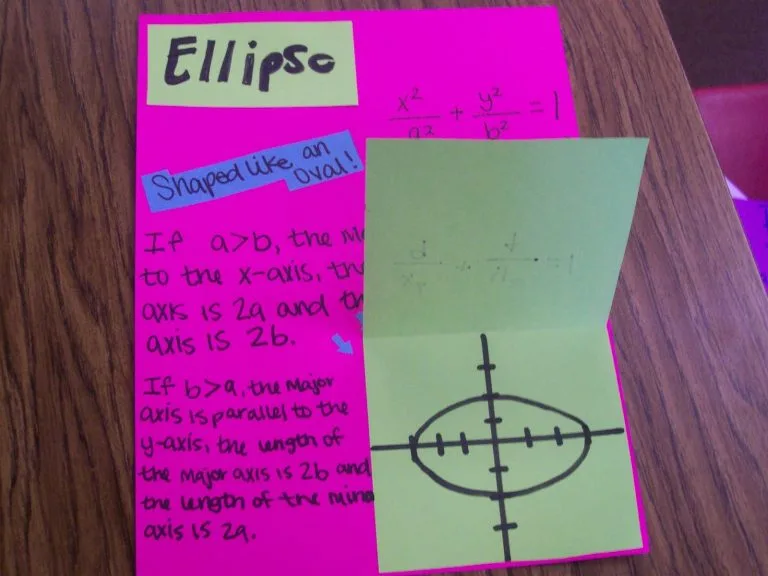 Ellipse
x²/a² + y²/b² = 1
Shaped like an
Oval!
If a>b, the
to the x-axis, the
axis is 2a and
axis is 2b.
If b>a, the Major
axis is parallel to the
y-axis, the length of
the Major axis is 2b and
the length of the
axis is 2a.